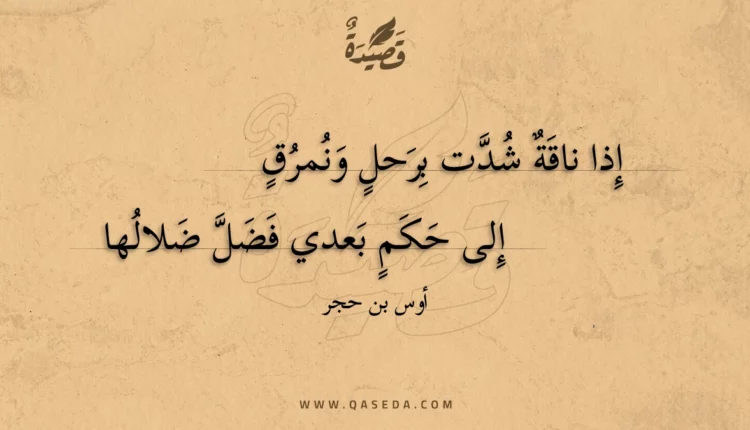 قَصِيدَةٌ
إِذا ناقَةٌ شُدَّت بِرَحلٍ وَنُمرُقٍ
إِلى حَكَمٍ بَعدي فَضَلَّ ضَلالُها
أوس بن حجر
WWW.QASEDA.COM